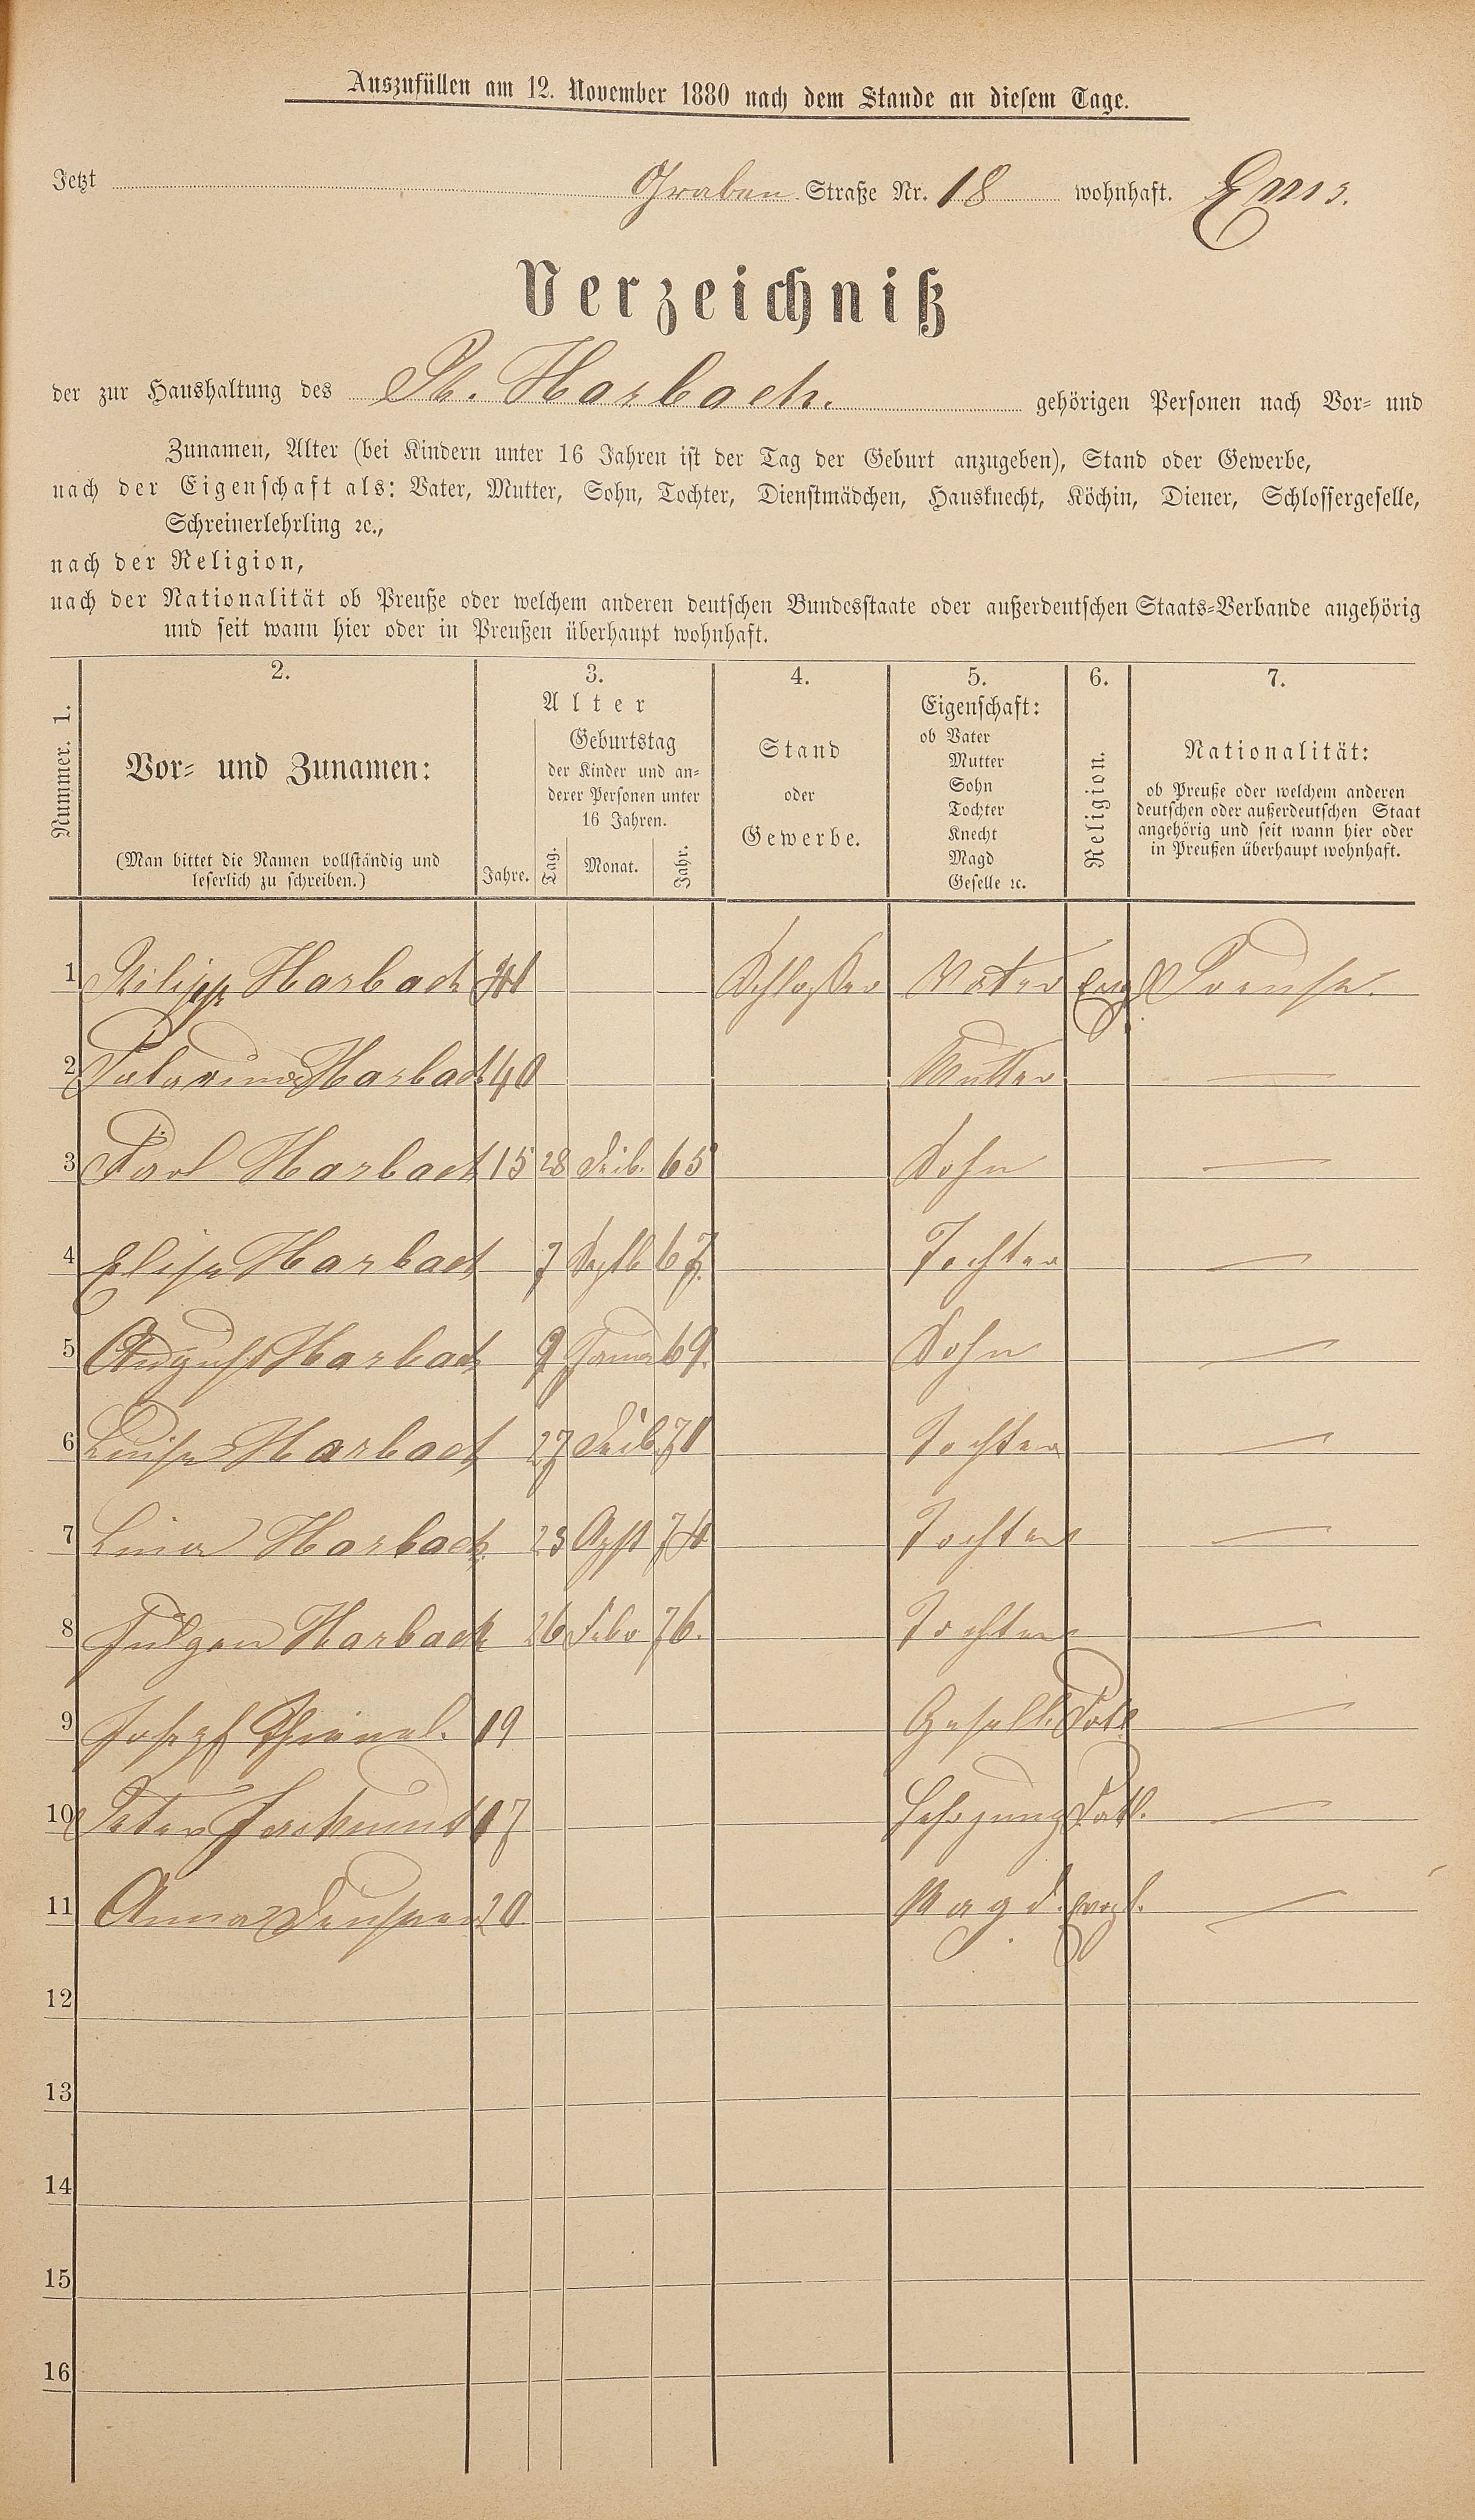 Auszufüllen am 12. November 1880 nach dem Stande an diesem Tage.
Jetzt Graben Straße Nr. 18 wohnhaft. Ems.
Verzeichniß
der zur Haushaltung des Ph. Harbach. gehörigen Personen nach Vor- und
Zunamen, Alter (bei Kindern unter 16 Jahren ist der Tag der Geburt anzugeben), Stand oder Gewerbe,
nach der Eigenschaft als: Vater, Mutter, Sohn, Tochter, Dienstmädchen, Hausknecht, Köchin, Diener, Schlossergeselle,
Schreinerlehrling ꝛc.,
nach der Religion,
nach der Nationalität ob Preuße oder welchem anderen deutschen Bundesstaate oder außerdeutschen Staats-Verbande angehörig
und seit wann hier oder in Preußen überhaupt wohnhaft.
Nummer. 1.
2.
Vor- und Zunamen:
(Man bittet die Namen vollständig und
leserlich zu schreiben.)
3.
Alter
Jahre.
Geburtstag
der Kinder und an-
derer Personen unter
16 Jahren.
Tag. Monat. Jahr.
4.
Stand
oder
Gewerbe.
5.
Eigenschaft:
ob Vater
Mutter
Sohn
Tochter
Knecht
Magd
Geselle ꝛc.
6.
Religion.
7.
Nationalität:
ob Preuße oder welchem anderen
deutschen oder außerdeutschen Staat
angehörig und seit wann hier oder
in Preußen überhaupt wohnhaft.
1 Philipp Harbach Schlosser Vater Evg Preuße.
2 Katarina Harbach 40 Mutter —
3 Karl Harbach 15 28 Feib. 65 Sohn —
4 Elise Harbach 7 Septb 67. Tochter —
5 August Harbach 9 Januar 69. Sohn —
6 Luise Harbach 27 Feib. 71 Tochter —
7 Lina Harbach. 23 Agst 74 Tochter —
8 Julgen Harbach 26 Febr 76. Tochter —
9 Josepf 19 Gesell. Kath —
10 Peter 17 Lehrjung Kath. —
11 Anna 20 Magd. evgl. —
12
13
14
15
16